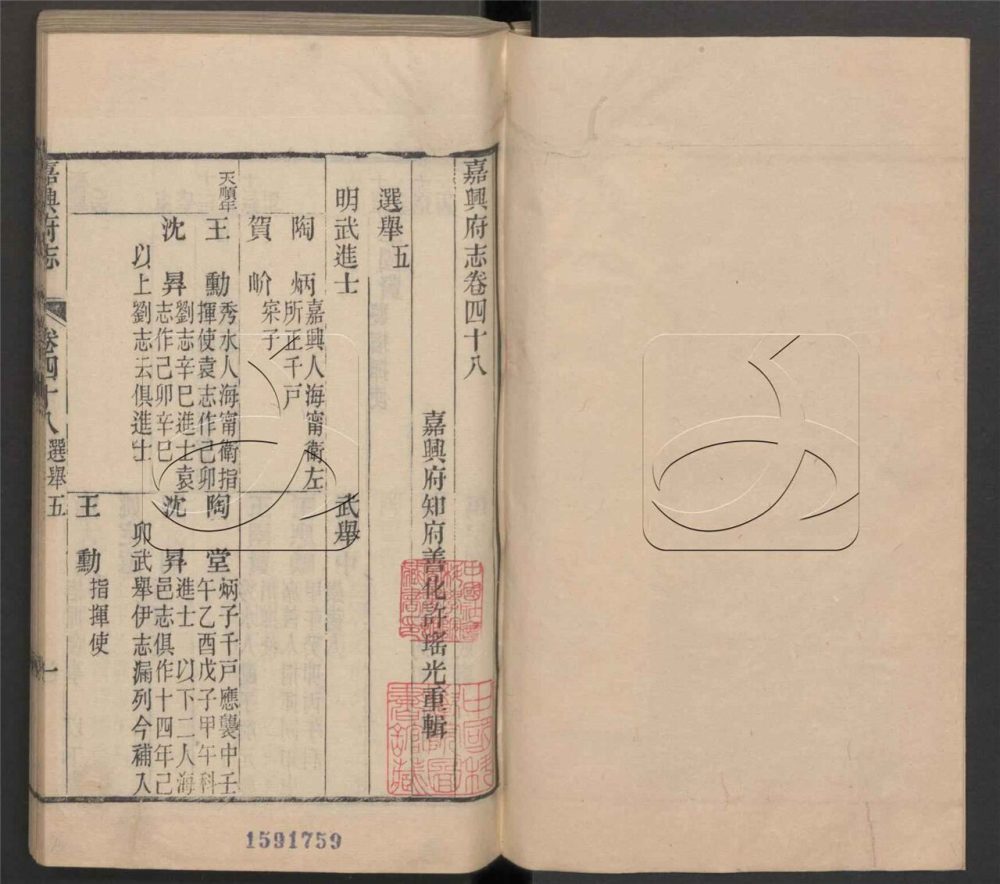 嘉興府志卷四十八
嘉興府知府善化許瑤光重輯
選舉五
明武進士
武舉
陶炳嘉興人海甯衛左
所正千戶
賀岎寀子
天順年
王勳秀水人海甯衛指
揮使袁志作己卯
沈昇劉志辛巳進士袁
志作己卯辛巳
以上劉志云俱進士
陶堂炳子千戶應襲中壬
午乙酉戊子甲午科
沈昇進士以下二人海
邑志俱作十四年己
卯武舉伊志漏列今補入
王勳指揮使
嘉興府志
卷四十八選舉五
一
1591759